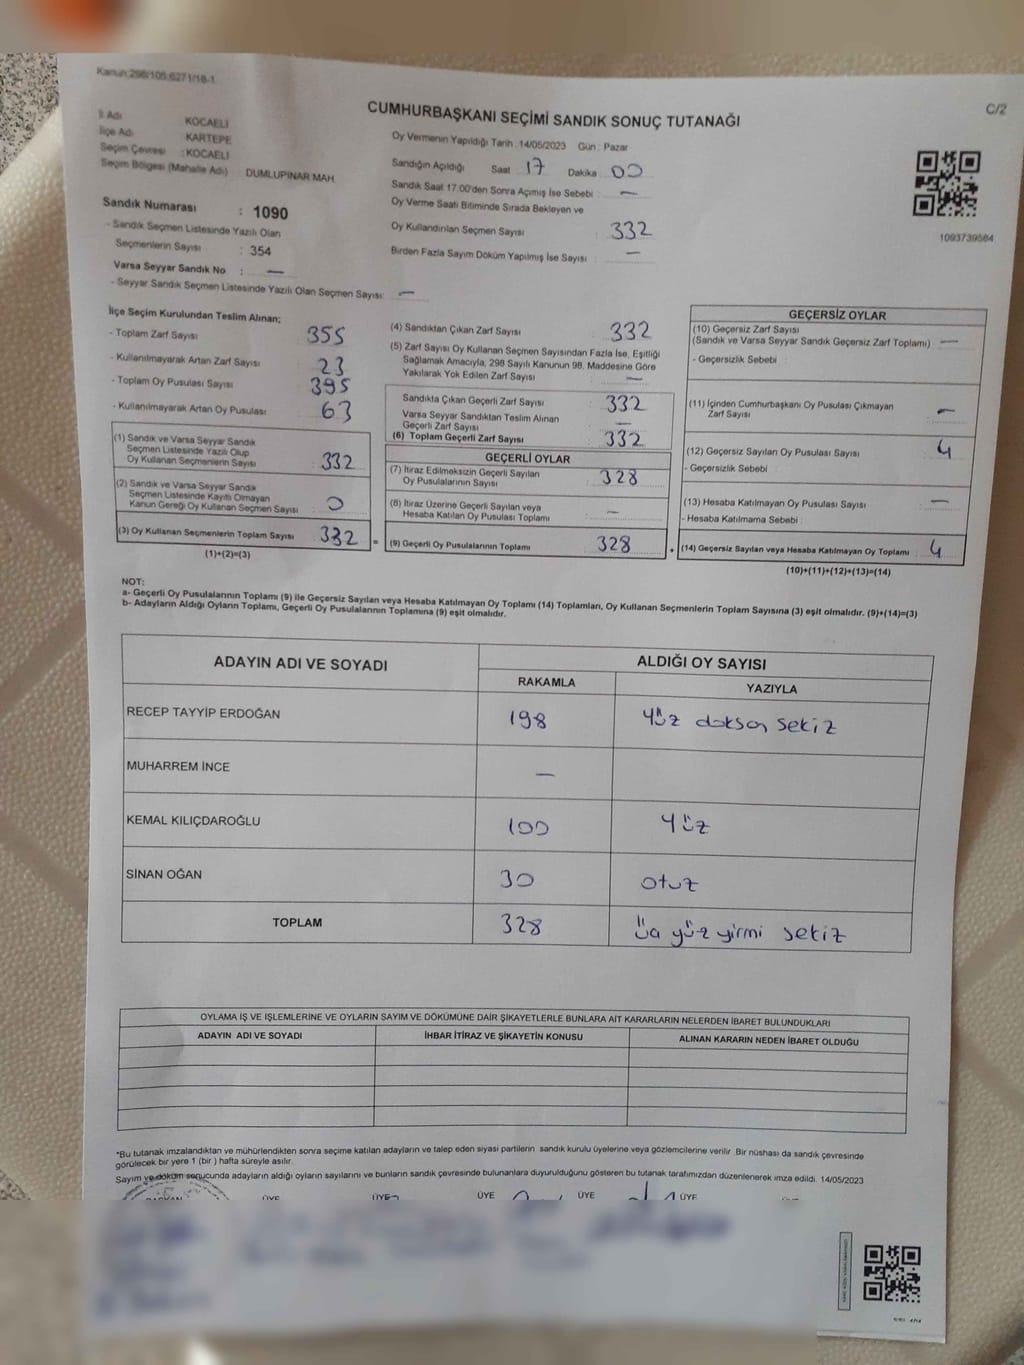 Kanun:298/105;6271/18-1
C/2
CUMHURBAŞKANI SEÇİMİ SANDIK SONUÇ TUTANAĞI
İl Adı KOCAELİ
İlçe Adı KARTEPE
Seçim Çevresi : KOCAELİ
Seçim Bölgesi (Mahalle Adı) DUMLUPINAR MAH.
Sandık Numarası : 1090
- Sandık Seçmen Listesinde Yazılı Olan
Seçmenlerin Sayısı : 354
Varsa Seyyar Sandık No : —
- Seyyar Sandık Seçmen Listesinde Yazılı Olan Seçmen Sayısı: —
Oy Vermenin Yapıldığı Tarih : 14/05/2023 Gün : Pazar
Sandığın Açıldığı Saat 17 Dakika 00
Sandık Saat 17:00'den Sonra Açımış İse Sebebi : —
Oy Verme Saati Bitiminde Sırada Bekleyen ve
Oy Kullandırılan Seçmen Sayısı : 332
Birden Fazla Sayım Döküm Yapılmış İse Sayısı : —
1093739564
İlçe Seçim Kurulundan Teslim Alınan;
- Toplam Zarf Sayısı 355
- Kullanılmayarak Artan Zarf Sayısı 23
- Toplam Oy Pusulası Sayısı 395
- Kullanılmayarak Artan Oy Pusulası 63
(1) Sandık ve Varsa Seyyar Sandık
Seçmen Listesinde Yazılı Olup
Oy Kullanan Seçmenlerin Sayısı 332
(2) Sandık ve Varsa Seyyar Sandık
Seçmen Listesinde Kayıtlı Olmayan
Kanun Gereği Oy Kullanan Seçmen Sayısı 0
(3) Oy Kullanan Seçmenlerin Toplam Sayısı 332 =
(1)+(2)=(3)
(4) Sandıktan Çıkan Zarf Sayısı 332
(5) Zarf Sayısı Oy Kullanan Seçmen Sayısından Fazla İse, Eşitliği
Sağlamak Amacıyla, 298 Sayılı Kanunun 98. Maddesine Göre
Yakılarak Yok Edilen Zarf Sayısı —
Sandıkta Çıkan Geçerli Zarf Sayısı 332
Varsa Seyyar Sandıktan Teslim Alınan
Geçerli Zarf Sayısı —
(6) Toplam Geçerli Zarf Sayısı 332
GEÇERLİ OYLAR
(7) İtiraz Edilmeksizin Geçerli Sayılan
Oy Pusulalarının Sayısı 328
(8) İtiraz Üzerine Geçerli Sayılan veya
Hesaba Katılan Oy Pusulası Toplamı —
(9) Geçerli Oy Pusulalarının Toplamı 328 +
GEÇERSİZ OYLAR
(10) Geçersiz Zarf Sayısı
(Sandık ve Varsa Seyyar Sandık Geçersiz Zarf Toplamı) —
- Geçersizlik Sebebi :
(11) İçinden Cumhurbaşkanı Oy Pusulası Çıkmayan
Zarf Sayısı —
(12) Geçersiz Sayılan Oy Pusulası Sayısı 4
- Geçersizlik Sebebi :
(13) Hesaba Katılmayan Oy Pusulası Sayısı —
- Hesaba Katılmama Sebebi :
(14) Geçersiz Sayılan veya Hesaba Katılmayan Oy Toplamı 4
(10)+(11)+(12)+(13)=(14)
NOT:
a- Geçerli Oy Pusulalarının Toplamı (9) ile Geçersiz Sayılan veya Hesaba Katılmayan Oy Toplamı (14) Toplamları, Oy Kullanan Seçmenlerin Toplam Sayısına (3) eşit olmalıdır. (9)+(14)=(3)
b- Adayların Aldığı Oyların Toplamı, Geçerli Oy Pusulalarının Toplamına (9) eşit olmalıdır.
ADAYIN ADI VE SOYADI ALDIĞI OY SAYISI
RAKAMLA YAZIYLA
RECEP TAYYİP ERDOĞAN 198 Yüz doksan sekiz
MUHARREM İNCE —
KEMAL KILIÇDAROĞLU 100 Yüz
SİNAN OĞAN 30 otuz
TOPLAM 328 üç yüz yirmi sekiz
OYLAMA İŞ VE İŞLEMLERİNE VE OYLARIN SAYIM VE DÖKÜMÜNE DAİR ŞİKAYETLERLE BUNLARA AİT KARARLARIN NELERDEN İBARET BULUNDUKLARI
ADAYIN ADI VE SOYADI İHBAR İTİRAZ VE ŞİKAYETİN KONUSU ALINAN KARARIN NEDEN İBARET OLDUĞU
*Bu tutanak imzalandıktan ve mühürlendikten sonra seçime katılan adayların ve talep eden siyasi partilerin sandık kurulu üyelerine veya gözlemcilerine verilir. Bir nüshası da sandık çevresinde
görülecek bir yere 1 (bir) hafta süreyle asılır.
Sayım ve döküm sonucunda adayların aldığı oyların sayılarını ve bunların sandık çevresinde bulunanlara duyurulduğunu gösteren bu tutanak tarafımızdan düzenlenerek imza edildi. 14/05/2023
BAŞKAN ÜYE ÜYE ÜYE ÜYE ÜYE ÜYE